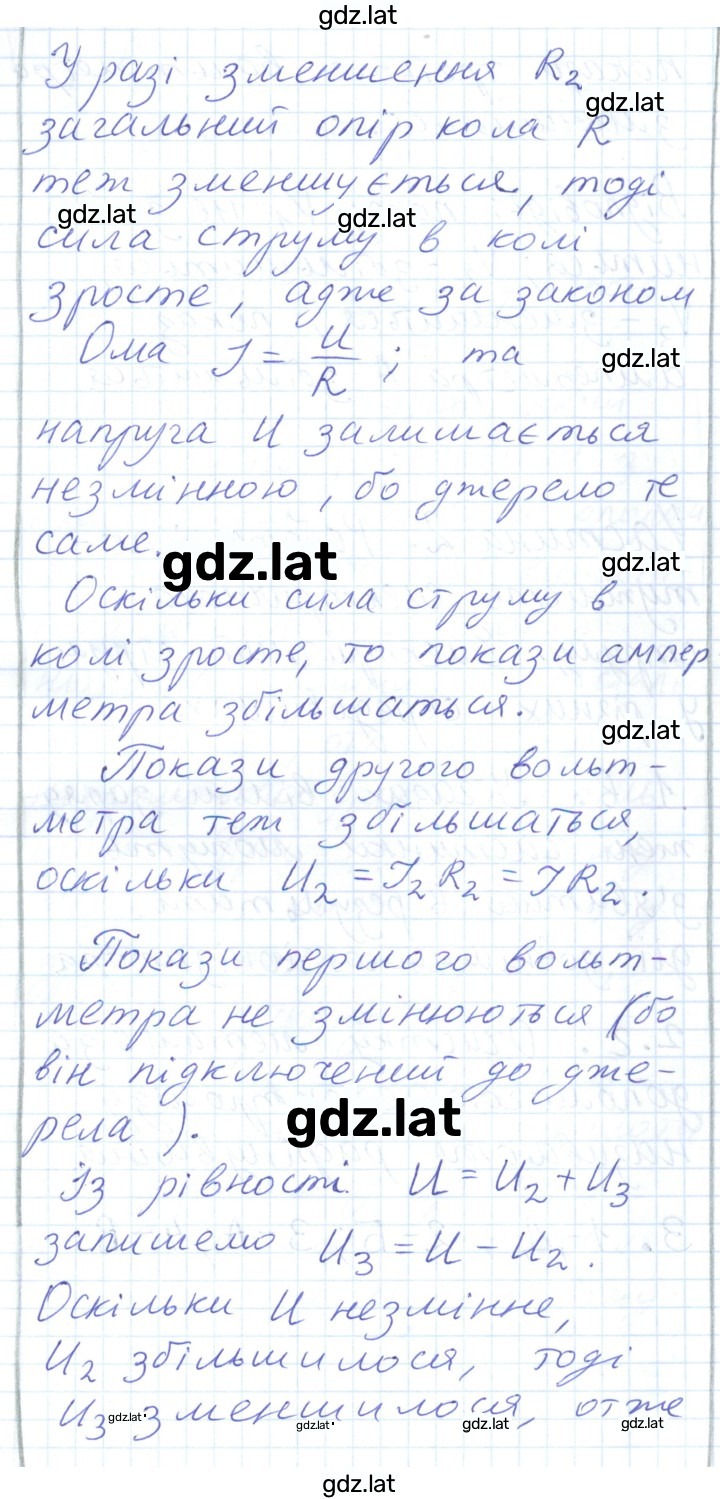 gdz.lat
У разі зменшення R₂
gdz.lat
загальний опір кола R
теж зменшується, тоді
gdz.lat
gdz.lat
сила струму в колі
зросте, адже за законом
Ома I = U/R ; та
gdz.lat
напруга U залишається
незмінною, бо джерело те
саме.
gdz.lat
gdz.lat
Оскільки сила струму в
колі зросте, то покази ампер
метра збільшаться.
gdz.lat
Покази другого вольт-
метра теж збільшаться,
оскільки U₂ = I₂R₂ = IR₂.
Покази першого вольт-
метра не змінюються (бо
він підключений до дже-
рела ).
gdz.lat
Із рівності U = U₂ + U₃
запишемо U₃ = U - U₂.
Оскільки U незмінне,
U₂ збільшилося, тоді
U₃ зменшилося, отже
gdz.lat
gdz.lat
gdz.lat
gdz.lat
gdz.lat